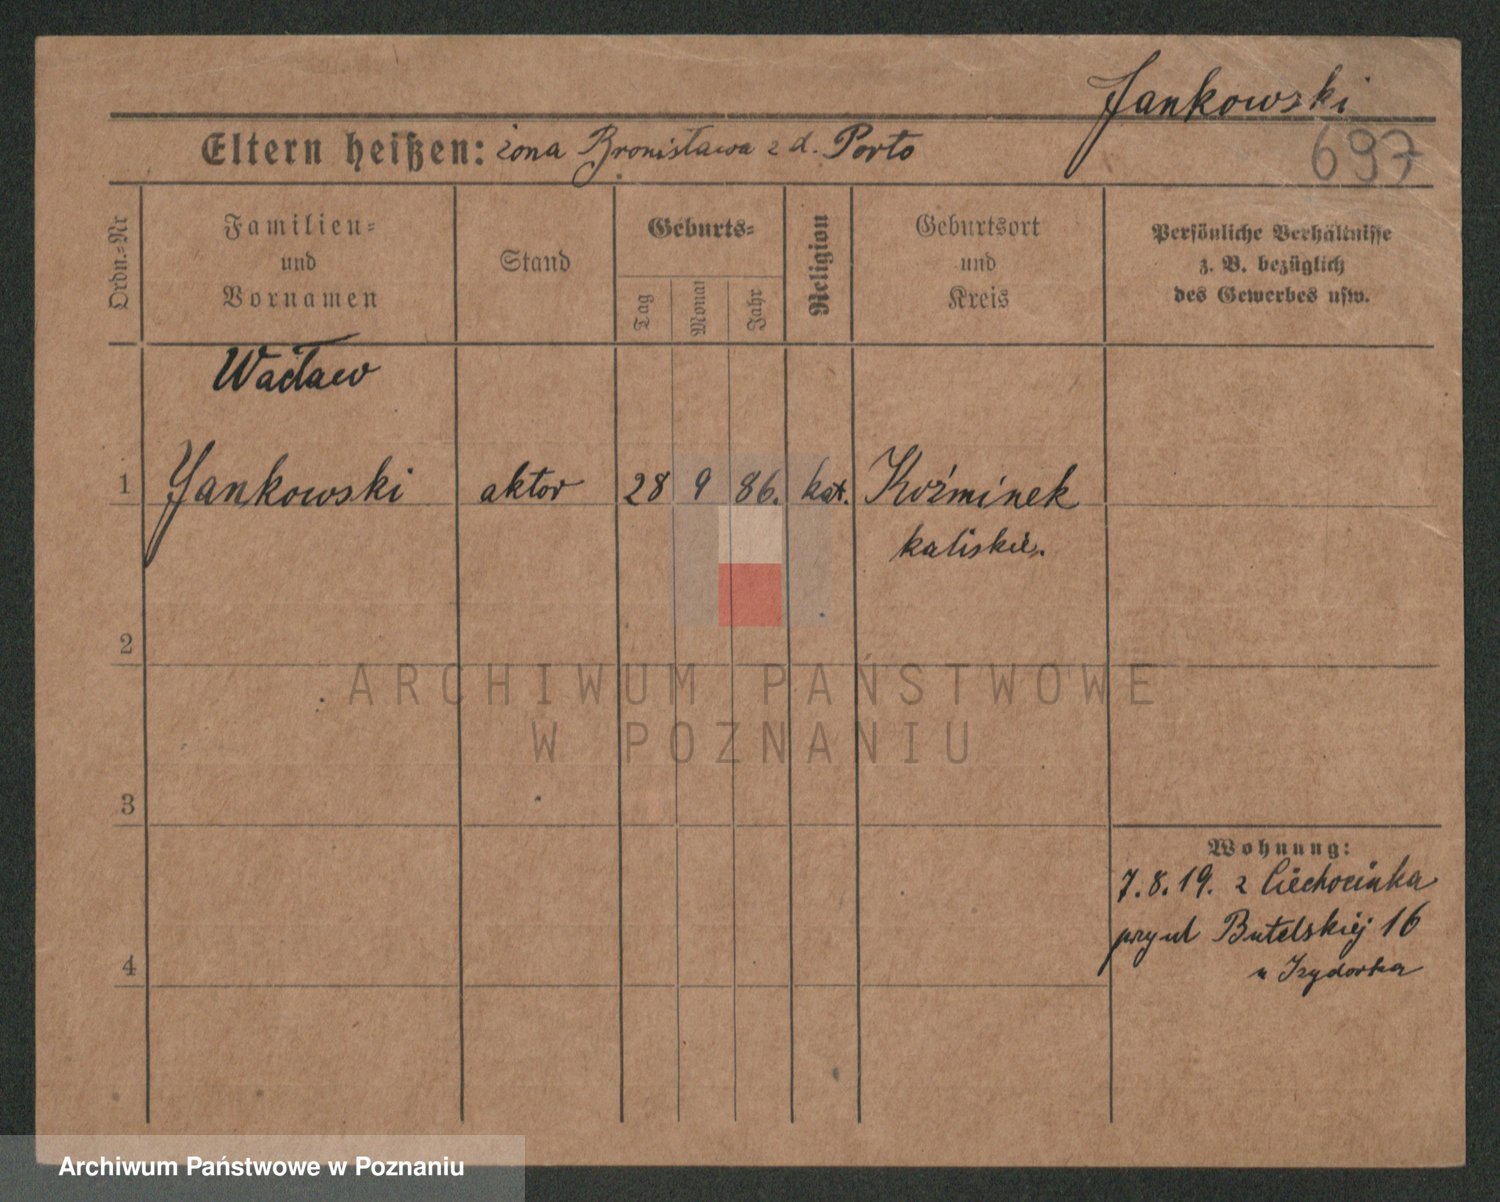 Jankowski
697
Eltern heißen: żona Bronisława z d. Porto
Ordn.=Nr
Familien=
und
Vornamen
Stand
Geburts=
Tag
Monat
Jahr
Religion
Geburtsort
und
Kreis
Persönliche Verhältnisse
z. B. bezüglich
des Gewerbes usw.
Wacław
1 Jankowski aktor 28 9 86. kat. Koźminek
kaliskie.
2
3
4
Wohnung:
7.8.19. z Ciechocinka
przy ul Butelskiéj 16
u Izydorka
ARCHIWUM PAŃSTWOWE
W POZNANIU
Archiwum Państwowe w Poznaniu